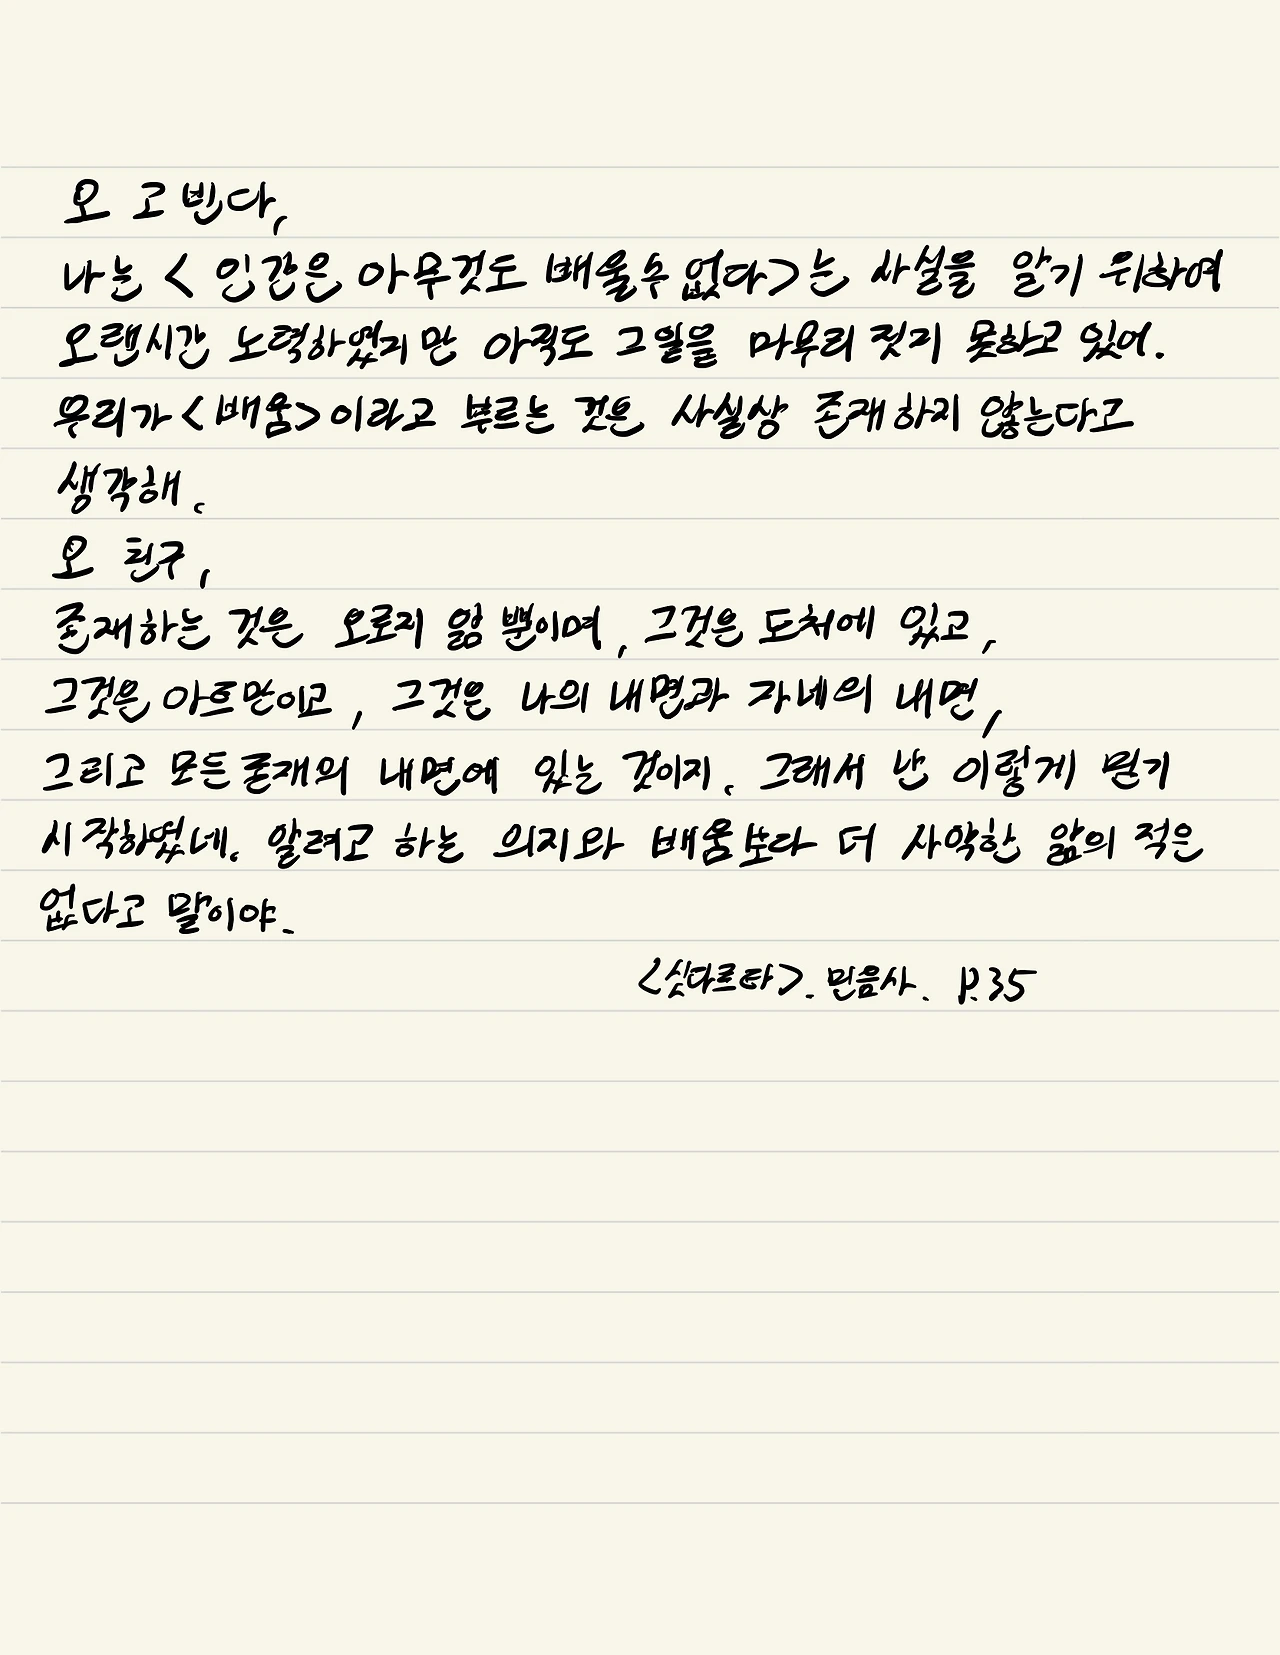 오 고빈다,
나는 <인간은 아무것도 배울수 없다>는 사실을 알기 위하여
오랜시간 노력하였지만 아직도 그 일을 마무리 짓지 못하고 있어.
우리가 <배움>이라고 부르는 것은 사실상 존재하지 않는다고
생각해.
오 친구,
존재하는 것은 오로지 앎 뿐이며, 그것은 도처에 있고,
그것은 아트만이고, 그것은 나의 내면과 자네의 내면,
그리고 모든 존재의 내면에 있는 것이지. 그래서 난 이렇게 믿기
시작하였네. 알려고 하는 의지와 배움보다 더 사악한 앎의 적은
없다고 말이야.
<싯다르타>. 민음사. P.35